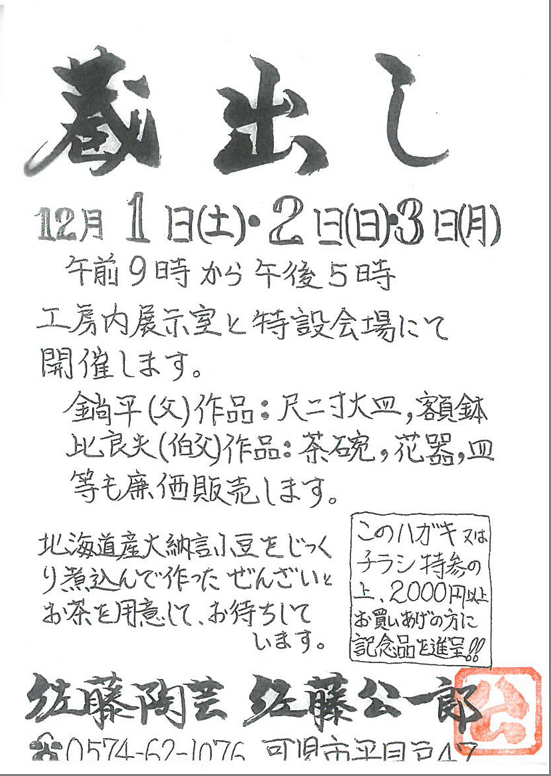 蔵出し
12月1日(土)・2日(日)・3日(月)
午前9時から午後5時
工房内展示室と特設会場にて
開催します。
(父)作品:尺二寸大皿,額鉢
比良夫(伯父)作品:茶碗,花器,皿
等も廉価販売します。
北海道産大納言小豆をじっく
り煮込んで作ったぜんざいと
お茶を用意して、お待ちして
います。
このハガキ又は
チラシ持参の
上、2000円以上
お買いあげの方に
記念品を進呈!!
佐藤陶芸 佐藤公一郎
☎0574-62-1076 可児市平貝戸47